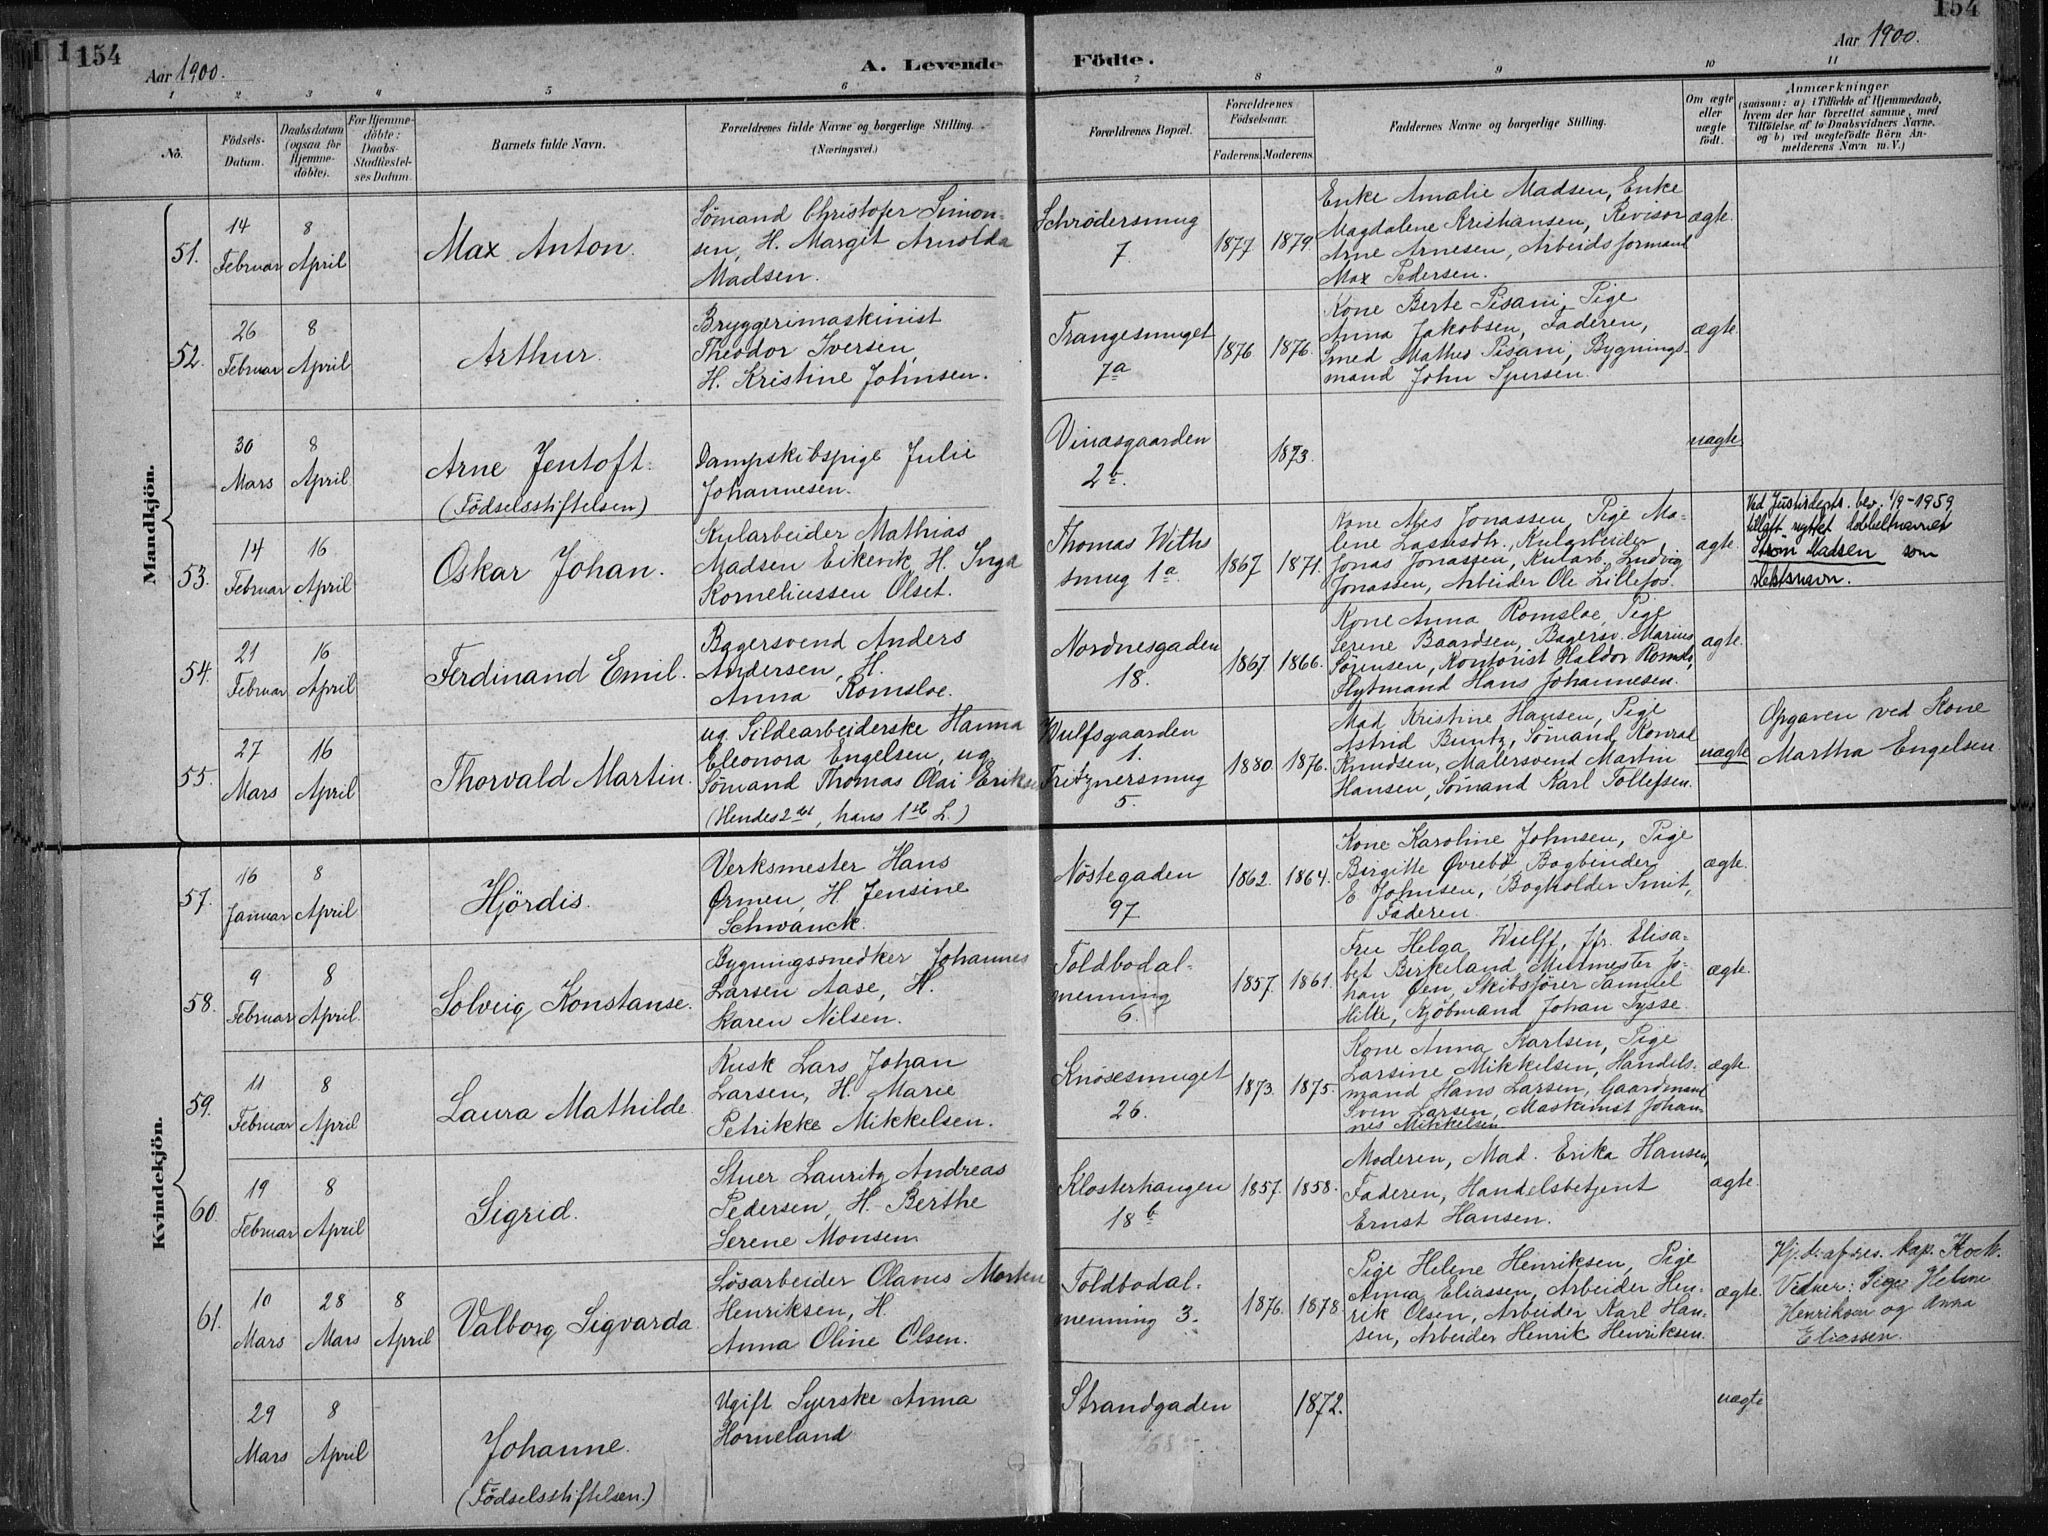 154
Aar 1900.
A. Levende Födte.
154
Aar 1900.
1 2 3 4 5 6 7 8 9 10 11
No.
Födsels-Datum.
Daabsdatum (ogsaa for Hjemme-döbte).
For Hjemme-döbte: Daabs-Stadfæstel-ses Datum.
Barnets fulde Navn.
Forældrenes fulde Navne og borgerlige Stilling. (Næringsvei.)
Forældrenes Bopæl.
Forældrenes Födselsaar.
Faderens. Moderens.
Faddernes Navne og borgerlige Stilling.
Om ægte eller uægte födt.
Anmærkninger
(saasom: a) i Tilfælde af Hjemmedaab, hvem der har forrettet samme, med Tilföielse af to Daabsvidners Navne, og b) ved uægtefödte Börn An-melderens Navn m. V.)
Mandkjön.
51.
14 Februar
8 April
Max Anton.
Sömand Christofer Simon-
sen, H. Margit Arnolda
Madsen.
Schrödersmug
7.
1877
1879.
Enke Amalie Madsen, Enke
Magdalene Kristiansen, Revisor
Arne Arnesen, Arbeidsformand
Max Pedersen.
ægte.
52.
26 Februar
8 April
Arthur.
Bryggerimaskinist
Theodor Iversen,
H. Kristine Johnsen.
Trangesmuget
7a
1876
1876.
Kone Berte Pisani, Pige
Anna Jakobsen, Faderen,
Smed Mathes Pisani, Bygnings-
mand John Syversen.
ægte.
30 Mars
8 April
Arne Jentoft.
(Födselsstiftelsen)
Dampskibspige Julie
Johannesen.
Vinæsgaarden
2b.
1873.
uægte
53.
14 Februar
16 April
Oskar Johan.
Kularbeider Mathias
Madsen Eikevik, H. Inga
Korneliussen Olset.
Thomas Withs
smug 1a.
1867
1871.
Kone Jonassen, Pige Ma-
lene Lassesdtr., Kularbeider
Jonas Jonassen, Kularb. Ludvig
Jonassen, Arbeider Ole Lillefos.
ægte.
Ved Justisdepts. bev. 1/9-1959
tillatt nyttet dobbeltnavnet
Strön Madsen som
slektsnavn.
54.
21 Februar
16 April
Ferdinand Emil.
Bagersvend Anders
Andersen, H.
Anna Romsloe.
Nordnesgaden
18.
1867
1866.
Kone Anna Romsloe, Pige
Serene Baardsen, Bagersv. Marius
Sörensen, Kontorist Haldor Romslo,
Flytmand Hans Johannesen.
ægte.
55.
27 Mars
16 April
Thorvald Martin.
ug. Sildearbeiderske Hanna
Eleonora Engelsen, ug.
Sömand Thomas Olai Eriksen
(Hendes 2det, hans 1ste L.)
Wulfsgaarden
1.
Fritznersmug
5.
1880.
1876.
Mad Kristine Hansen, Pige
Astrid Buntz, Sömand Konrad
Knudsen, Malersvend Martin
Hansen, Sömand Karl Tollefsen.
uægte
Opgaven ved Kone
Martha Engelsen.
Kvindekjön.
57.
16 Januar
8 April
Hjördis.
Verksmester Hans
Ørmen, H. Jensine
Schwanck.
Nöstegaden
97
1862.
1864.
Kone Karoline Johnsen, Pige
Birgitte Øvrebö, Bogbinder
E Johnsen, Bogholder Smit,
Faderen.
ægte.
58.
9 Februar
8 April.
Solveig Konstanse.
Bygningssnedker Johannes
Larsen Aase, H.
Karen Nilsen.
Toldbodal-
menning
6.
1857.
1861.
Fru Helga Wulff, Jfr. Elisa-
bet Birkeland, Murmester Jo-
han Øen, Skibsförer Samuel
Hille, Kjöbmand Johan Tysse.
ægte.
59.
11 Februar
8 April
Laura Mathilde.
Kusk Lars Johan
Larsen, H. Marie
Petrikke Mikkelsen.
Knösesmuget
26.
1873.
1875.
Kone Anna Karlsen, Pige
Larsine Mikkelsen, Handels-
mand Hans Larsen, Gaardmand
Sven Larsen, Maskinist Johan-
nes Mikkelsen.
ægte.
60.
19 Februar
8 April
Sigrid.
Stuer Lauritz Andreas
Pedersen, H. Berthe
Serene Monsen
Klosterhaugen
18b
1857.
1858.
Moderen, Mad. Erika Hansen,
Faderen, Handelsbetjent
Ernst Hansen.
ægte.
61.
10 Mars
28 Mars
8 April
Valborg Sigvarda.
Lösarbeider Olanus Morten
Henriksen, H.
Anna Oline Olsen.
Toldbodal-
menning 3.
1876.
1878.
Pige Helene Henriksen, Pige
Anna Eliassen, Arbeider Hen-
rik Olsen, Arbeider Karl Han-
sen, Arbeider Henrik Henriksen.
ægte.
Hj. d. af res. kap. Koch.
Vidner: Pige Helene
Henriksen og Anna
Eliassen.
29 Mars
8 April
Johanne.
(Födselsstiftelsen.)
Ugift Syerske Anna
Horneland
Strandgaden
1872.
uægte